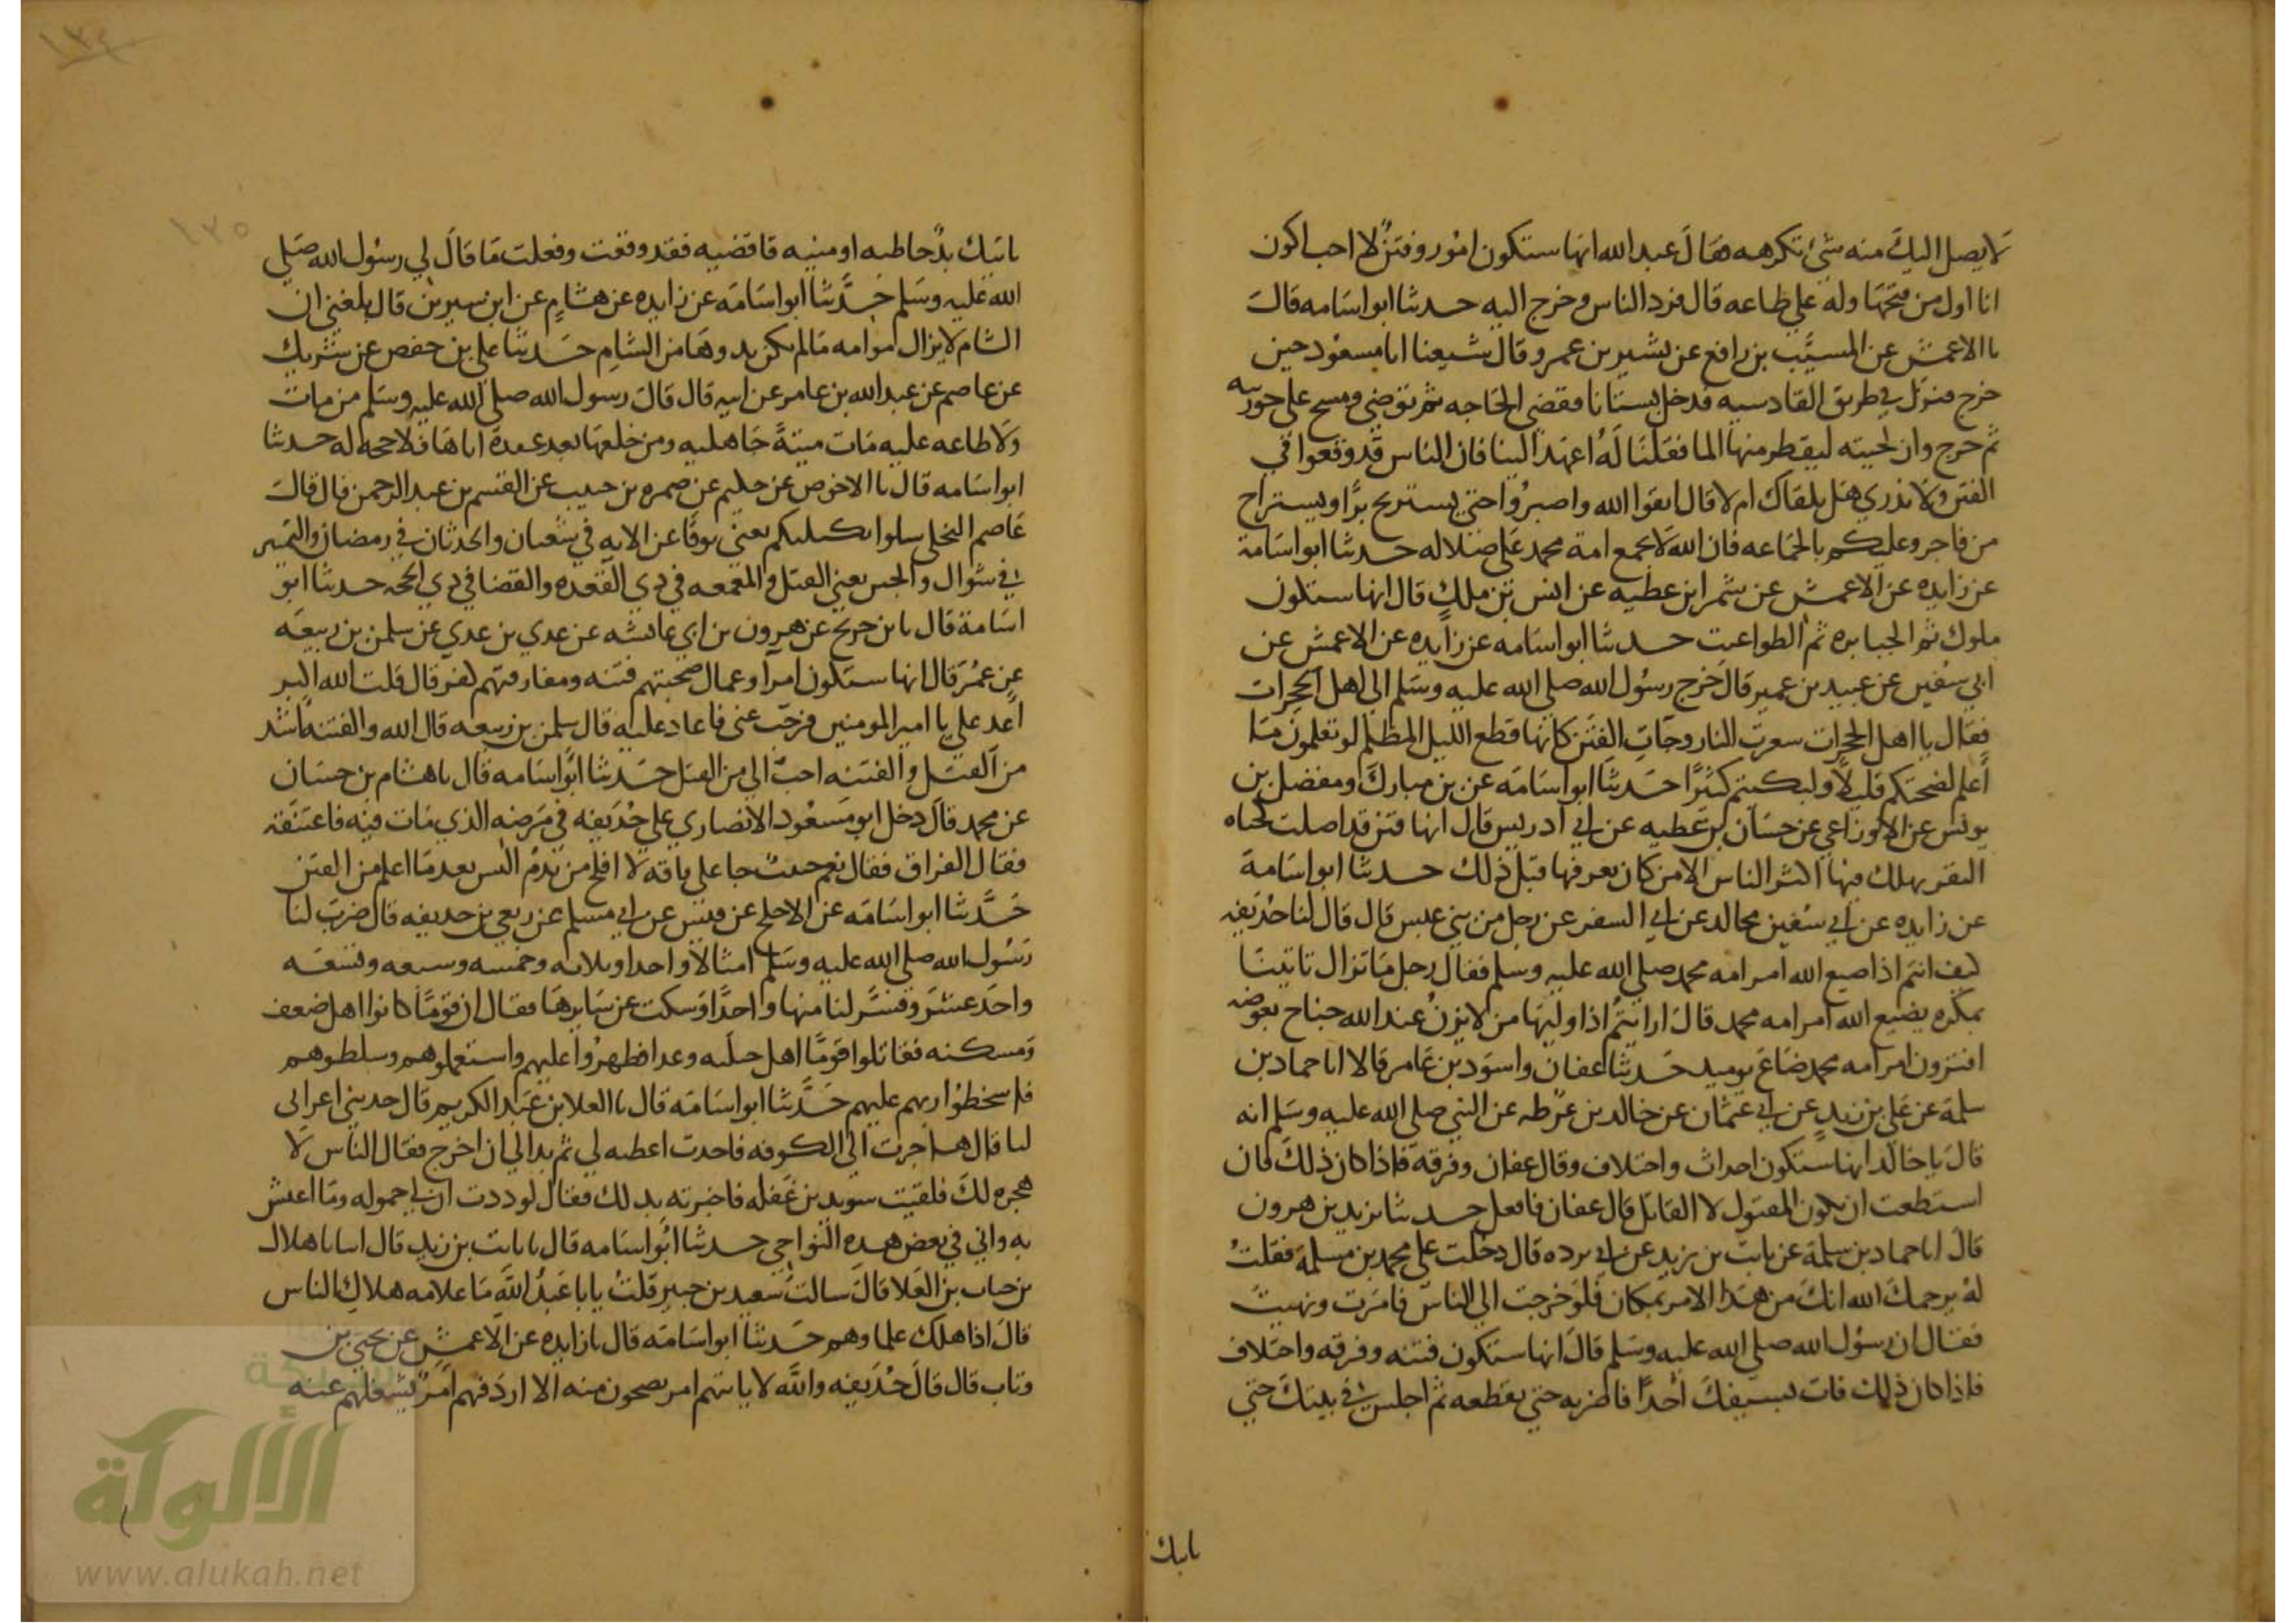 لا يصل اليك منه شي تكرهه فقال عبد الله انها ستكون امور وفتن لا احب اكون
انا اول من فتحها وله علي طاعه قال فرد الناس وخرج اليه حدثنا ابو اسامه قالت
نا الاعمش عن المسيب بن رافع عن بشير بن عمرو قال شيعنا ابا مسعود حين
خرج فنزل في طريق القادسيه فدخل بستانا فقضى الحاجه ثم توضى ومسح على جوربيه
ثم خرج وان لحيته ليقطر منها الما فقلنا له اعهد الينا فان الناس قد وقعوا في
الفتن ولا ندري هل نلقاك ام لا قال اتقوا الله واصبروا حتى يستريح برا ويستراح
من فاجر وعليكم بالجماعه فان الله لا يجمع امة محمد على ضلاله حدثنا ابو اسامة
عن زايده عن الاعمش عن شمر ابن عطيه عن انس بن ملك قال انها ستكون
ملوك ثم الجبابره ثم الطواغيت حدثنا ابو اسامه عن زايده عن الاعمش عن
ابي سفين عن عبيد بن عمير قال خرج رسول الله صلى الله عليه وسلم الى اهل الحجرات
فقال يا اهل الحجرات سعرت النار وجات الفتن كانها قطع الليل المظلم لو تعلمون ما
أعلم لضحكتم قليلا ولبكيتم كثيرا حدثنا ابو اسامه عن بن مبارك ومفضل بن
يونس عن الاوزاعي عن حسان بن عطيه عن ابي ادريس قال انها فتن قد اصلت كجباه
البقر يهلك فيها اكثر الناس الا من كان يعرفها قبل ذلك حدثنا ابو اسامة
عن زايده عن ابي سفين مجالد عن ابي السفر عن رجل من بني عبس قال قال لنا حذيفه
كيف انتم اذا ضيع الله امر امه محمد صلى الله عليه وسلم فقال رجل ما تزال تاتينا
بمكره يضيع الله امر امه محمد قال ارايتم اذا وليها من لا يزن عند الله جناح بعوضه
افترون امر امه محمد ضاع يوميد حدثنا عفان واسود بن عامر قالا انا حماد بن
سلمة عن علي بن زيد عن ابي عثمان عن خالد بن عرفطه عن النبي صلى الله عليه وسلم انه
قال يا خالد انها ستكون احداث واختلاف وقال عفان وفرقه فاذا كان ذلك فان
استطعت ان تكون المقتول لا القاتل قال عفان فافعل حدثنا يزيد بن هرون
قال انا حماد بن سلمة عن ثابت بن يزيد عن ابي برده قال دخلت على محمد بن مسلمة فقلت
له يرحمك الله انك من هذا الامر بمكان فلو خرجت الى الناس فامرت ونهيت
فقال ان رسول الله صلى الله عليه وسلم قال انها ستكون فتنه وفرقه واختلاف
فاذا كان ذلك فات بسيفك أحدا فاضربه حتى يقطعه ثم اجلس في بيتك حتى
ياتيك
ياتيك يد خاطيه او منيه قاضيه فقد وقعت وفعلت ما قال لي رسول الله صلى
الله عليه وسلم حدثنا ابو اسامه عن زايده عن هشام عن ابن سيرين قال بلغني ان
الشام لا يزال موامه ما لم يكن بدوها من الشام حدثنا علي بن حفص عن شريك
عن عاصم عن عبد الله بن عامر عن ابيه قال قال رسول الله صلى الله عليه وسلم من مات
ولا طاعه عليه مات ميتة جاهليه ومن خلعها بعد عقدة اياها فلا حجه له حدثنا
ابو اسامه قال نا الاخوص عن حليم عن ضمره بن حبيب عن القسم بن عبد الرحمن قال قالت
عاصم البجلي سلوا بكيليكم يعني نوفا عن الايه في شعبان والحدثان في رمضان والتمييز
في شوال والحس يعني القتل والمعمعه في ذي القعده والقضا في ذي الحجه حدثنا ابو
اسامة قال نا بن جريج عن هرون بن ابي عايشه عن عدي بن عدي عن سلمن بن ربيعه
عن عمر قال انها ستكون امرآ وعمال صحبتهم فتنه ومفارقتهم كفر قال قلت الله اكبر
أعد علي يا امير المومنين فرجت عني فاعاد عليه قال سلمن بن ربيعه قال الله والفتنه اشد
من القتل والفتنه احب الي من القتل حدثنا ابو اسامه قال نا هشام بن حسان
عن محمد قال دخل ابو مسعود الانصاري علي حذيفه في مرضه الذي مات فيه فاعتنقه
فقال الفراق فقال نعم حبيب جا على فاقه لا افلح من ندم اليس بعد ما اعلم من الفتن
حدثنا ابو اسامه عن الاجلح عن قيس عن ابي مسلم عن ربعي بن حذيفه قال ضرب لنا
رسول الله صلى الله عليه وسلم امثالا واحدا وثلاثه وخمسه وسبعه وتسعه
واحد عشر وفسر لنا منها واحدا وسكت عن سايرها فقال ان قوما كانوا اهل ضعف
ومسكنه فقاتلوا قوما اهل حيله وعدا فظهروا عليهم واستعملوهم وسلطوهم
فاسخطوا ربهم عليهم حدثنا ابو اسامه قال نا العلا بن عبد الكريم قال حدثني اعرابي
لنا قال هاجرت الى الكوفه فاخذت اعطيه لي ثم بدا لي ان اخرج فقال الناس لا
هجره لك فلقيت سويد بن غفله فاخبرته بذلك فقال لوددت ان لي حموله وما اعيش
به واني في بعض هذه النواحي حدثنا ابو اسامه قال نا ثابت بن زيد قال انبانا هلال
بن خباب بن العلا قال سالت سعيد بن جبير قلت يا با عبد الله ما علامه هلاك الناس
قال اذا هلك علماوهم حدثنا ابو اسامه قال نا زايده عن الاعمش عن يحيى بن
وثاب قال قال حذيفه والله لا ياتيهم امر يضجون منه الا اردفهم امر يشغلهم عنه
١٣٤
١٣٥
شبكة
الألوكة
www.alukah.net